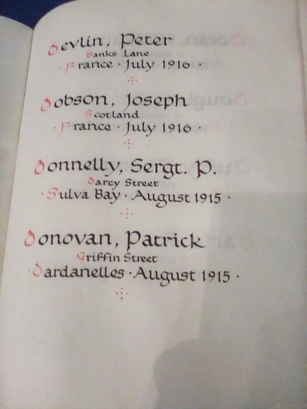 Devlin, Peter
Banks Lane
· France · July 1916 ·
Dobson, Joseph
Scotland
· France · July 1916 ·
Donnelly, Sergt. P.
Darcy Street
· Sulva Bay · August 1915 ·
Donovan, Patrick
Griffin Street
· Dardanelles · August 1915 ·